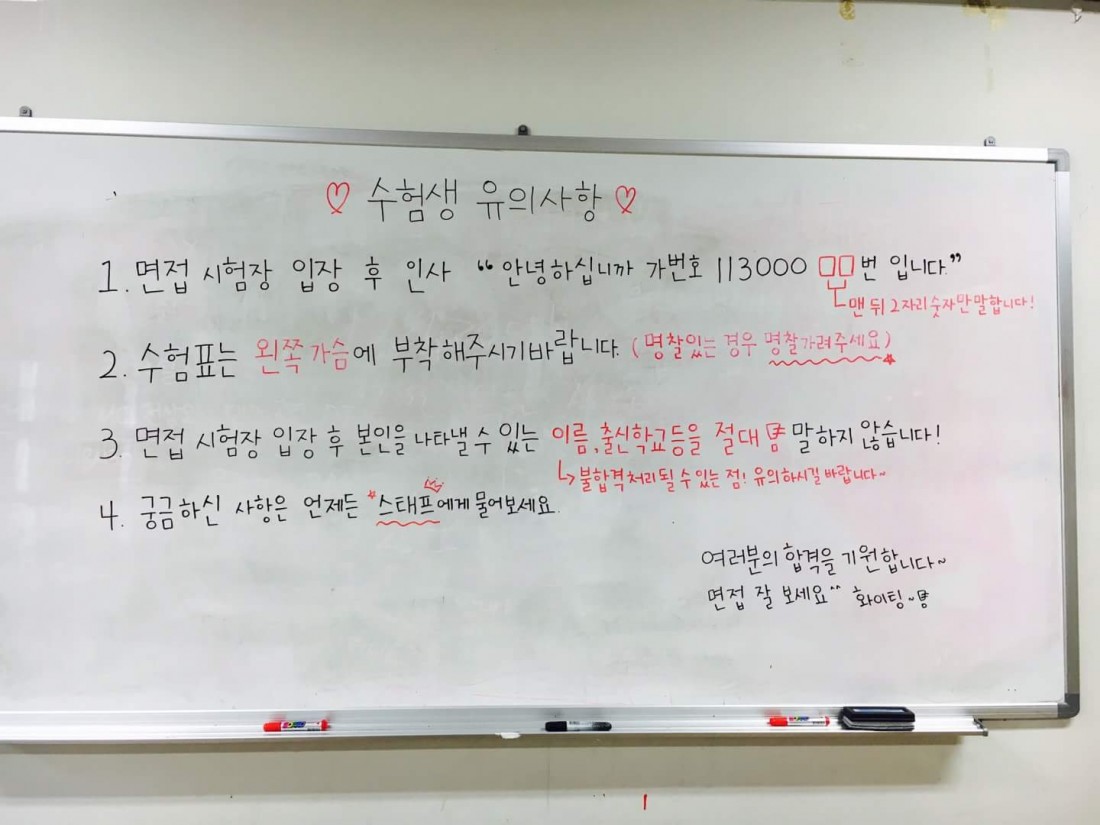 ♡ 수험생 유의사항 ♡
1. 면접 시험장 입장 후 인사 “안녕하십니까 가번호 113000 □□번 입니다.”
맨 뒤 2자리 숫자만 말합니다!
2. 수험표는 왼쪽 가슴에 부착해주시기바랍니다. (명찰있는 경우 명찰가려주세요)
3. 면접 시험장 입장 후 본인을 나타낼 수 있는 이름, 출신학교등을 절대 말하지 않습니다!
↳ 불합격처리될 수 있는 점! 유의하시길 바랍니다~
4. 궁금하신 사항은 언제든 *스태프에게 물어보세요.
여러분의 합격을 기원합니다~
면접 잘 보세요^^ 화이팅~